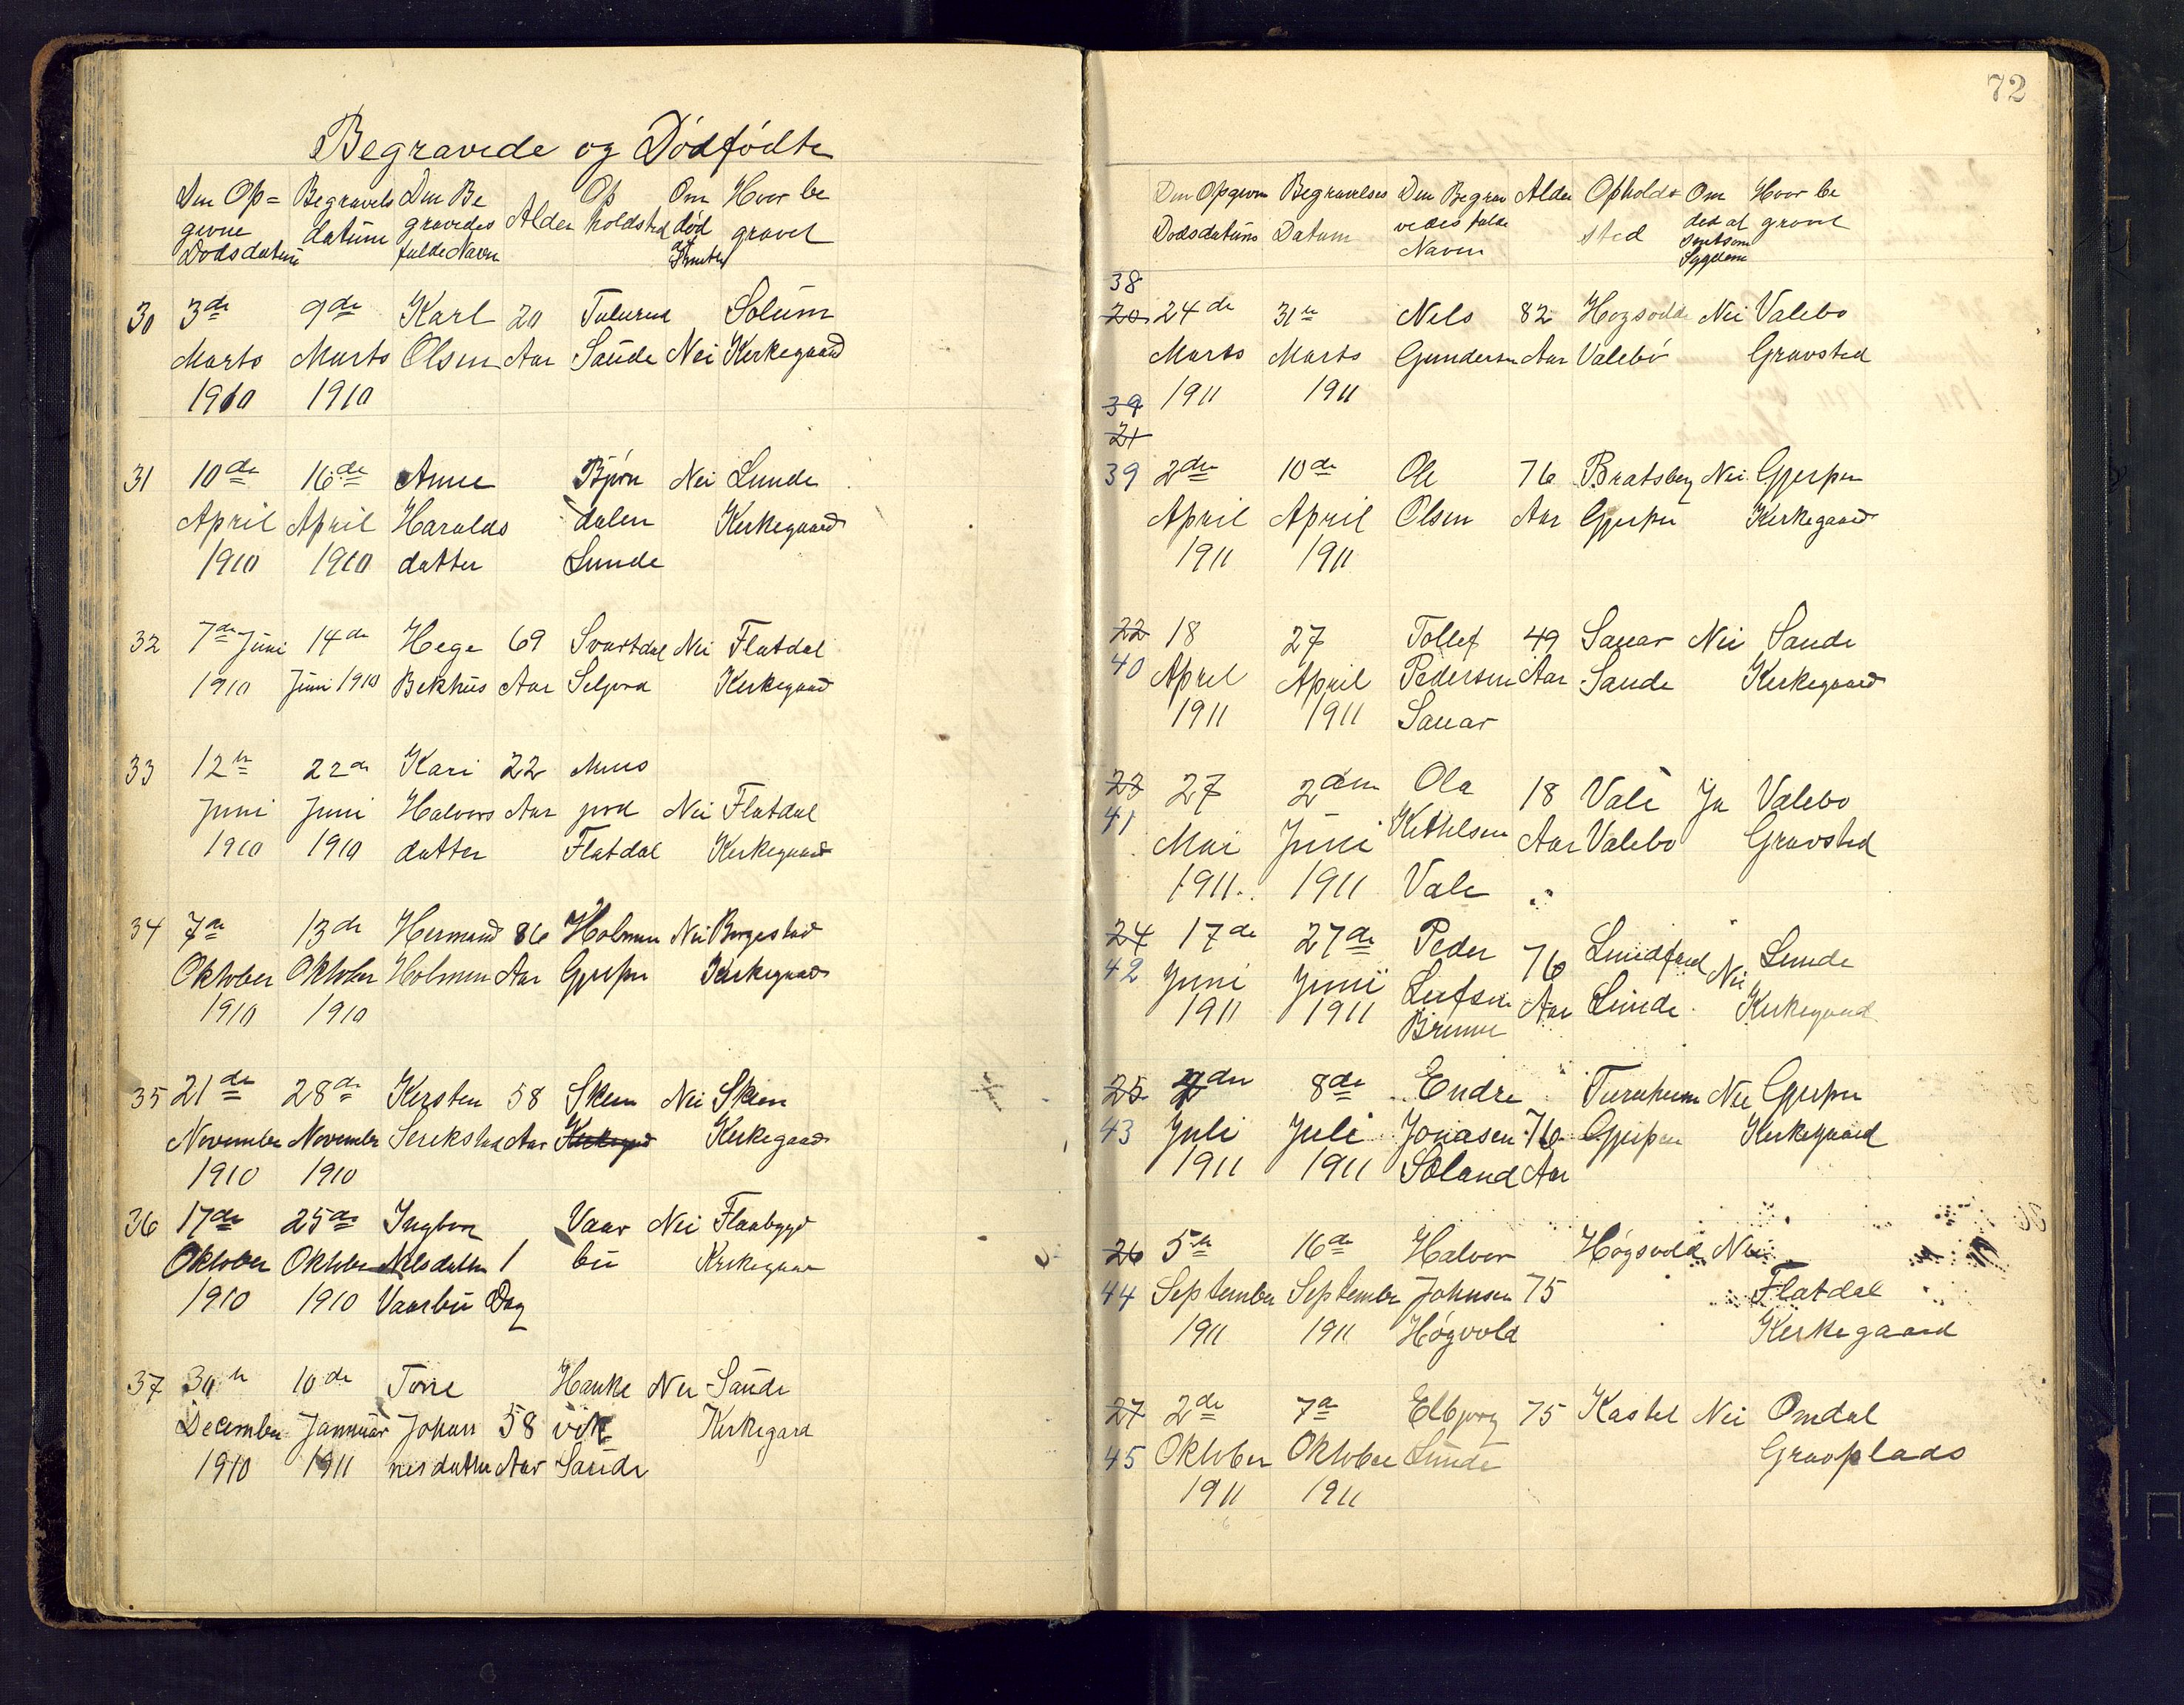 Begravede og Dødfødte
Den Op= Begravels Den Be Op Om Hvor be
givne datum gravedes Alder holdsted død gravet
Dødsdatum fulde Navn af
30 3de 9de Karl 20 Solum
Marts Marts Olsen Aar Saude Nei Kirkegaard
1910 1910
31 10de 16de Anne Bjørn Nei Lunde
April April Haralds dalen Kirkegaard
1910 1910 datter Lunde
32 7de Juni 14de Hege 69 Svartdal Nei Flatdal
1910 Juni 1910 Bekhus Aar Seljord Kirkegaard
33 12te 22de Kari 22 Mus
Juni Juni Halvors Aar jord Nei Flatdal
1910 1910 datter Flatdal Kirkegaard
34 7de 13de Hermand 86 Holmen Nei Borgestad
Oktober Oktober Holmen Aar Gjerpen Kirkegaard
1910 1910
35 21de 28de Kirsten 58 Skien Nei Skien
November November Aar Kirkegaard
1910 1910
36 17de 25de Ingbor Vaar Nei Flaabygd
Oktober Oktober Nilsdatter 1 bu Kirkegaar
1910 1910 Vaarbu Dag
37 30te 10de Tone Hauke Nei Saude
December Januar Johan 58 vik Kirkegard
1910 1911 nesdatter Aar Saude
72
Den Opgivne Begravelses Den Begra Alder Opholds Om Hvor be
Dødsdatums Datum vedes fulde sted død af gravet
Navn smitsom
Sygdom
38
20 24de 31te Nels 82 Høgsvold Nei Valebø
Marts Marts Gundersen Aar Valebø Gravsted
39 1911 1911
21
39 2den 10de Ole 76 Bratsberg Nei Gjerpen
April April Olsen Aar Gjerpen Kirkegaard
1911 1911
22 18 27 Tollef 49 Sauar Nei Saude
40 April April Pedersen Aar Saude Kirkegaard
1911 1911 Sauar
23 27 2den Ola 18 Vale Ja Valebø
41 Mai Juni Kethelsen Aar Valebø Gravsted
1911 1911 Vale
24 17de 27de Peder 76 Nei Lunde
42 Juni Juni Leifsen Aar Lunde Kirkegaard
1911 1911
25 2den 8de Endre Nei Gjerpen
43 Juli Juli Jonasen 76 Gjerpen Kirkegaard
1911 1911 Søland Aar
26 5te 16de Halvor Høgsvold Nei
44 September September Johnsen 75 Flatdal
1911 1911 Høgvold Kirkegaard
27 2de 7de Elbjørg 75 Kastel Nei Omdal
45 Oktober Oktober Lunde Gravplads
1911 1911